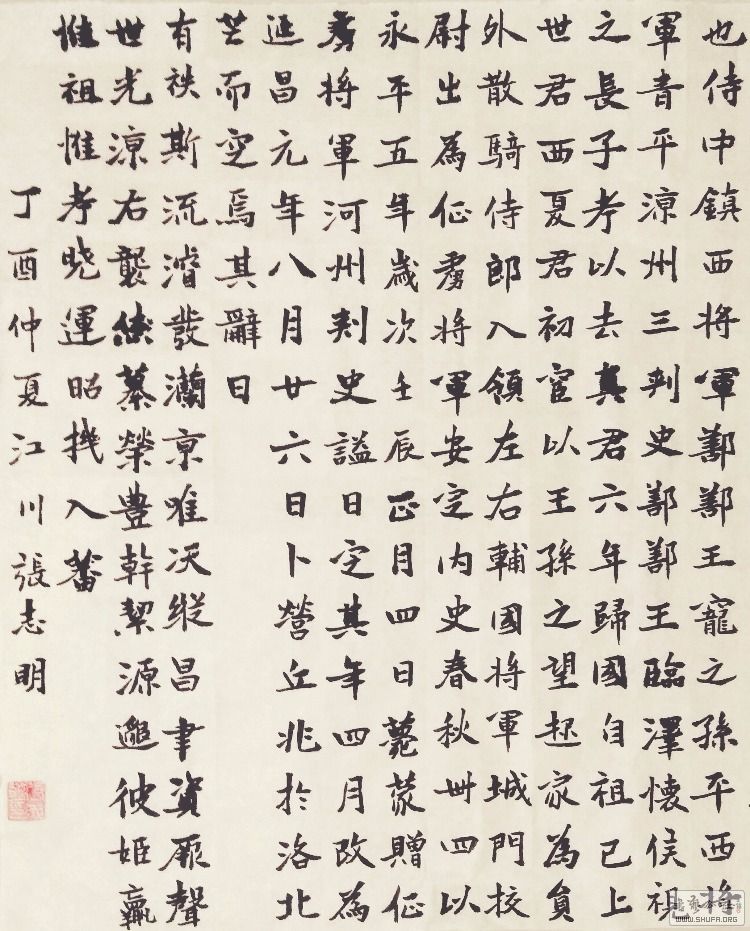 也侍中鎮西將軍鄯鄯王寵之孫平西將
軍青平涼州三刾史鄯鄯王臨澤懷侯視
之長子考以去真君六年歸國自祖已上
世君西夏君初宦以王孫之望起家為員
外散騎侍郎入領左右輔國將軍城門校
尉出為征虜將軍安定內史春秋卌四以
永平五年歲次壬辰正月四日薨蒙贈征
虜將軍河州刾史謚曰定其年四月改為
延昌元年八月廿六日卜營丘兆於洛北
芒而窆焉其辭曰
有袟斯流濬發瀾京唯天縱昌聿資厥聲
世光涼右襲休纂榮豐幹絜源邈彼姬嬴
惟祖惟考曉運昭機入蕃
丁酉仲夏江川張志明
WWW.SHUFA.ORG